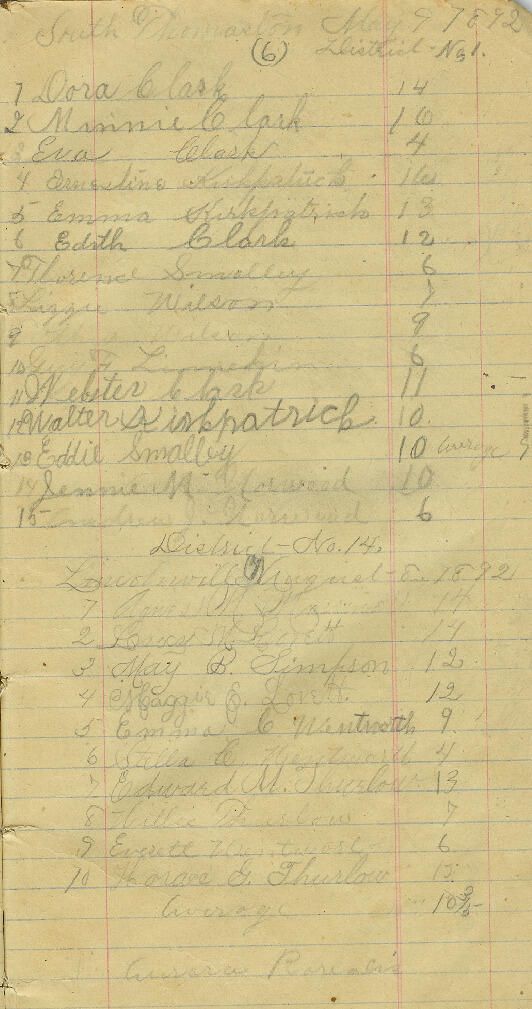 South Thomaston May 9 1892
(6) District - No 1.
1 Dora Clark 14
2 Minnie Clark 16
3 Eva Clark 4
4 Ernestine Kirkpatrick 16
5 Emma Kirkpatrick 13
6 Edith Clark 12
7 Florence Smalley 6
8 Lizzie Wilson 7
9
10 Linnekin 6
11 Webster Clark 11
12 Walter Kirkpatrick 10
13 Eddie Smalley 10 average
14 Jennie Norwood 10
15 Andrew J. Norwood 6
District - No. 14.
Lincolnville (7) August - 8 - 1892
1 Agnes 14
2 Lovett 14
3 May B. Simpson 12
4 Maggie E. Lovett 12
5 Emma C Wentworth 9
6 Stella C. Wentworth 4
7 Edward M. Thurlow 13
8 Willie Thurlow 7
9 Everett Wentworth 6
10 Horace G. Thurlow 15
Average
Aurora Borealis